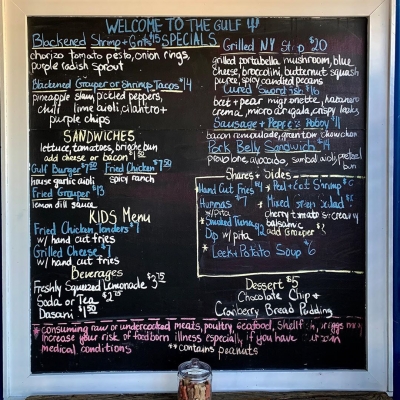 WELCOME TO THE GULF
Blackened Shrimp + Grits $15 SPECIALS
chorizo tomato pesto, onion rings,
purple radish sprout
Blackened Grouper or Shrimp Tacos $14
pineapple slaw, pickled peppers,
chili lime aioli, cilantro +
purple chips
SANDWICHES
lettuce, tomatoes, brioche bun
add cheese or bacon $1.50
Gulf Burger $7.50 Fried Chicken $7.50
house garlic aioli spicy ranch
Fried Grouper $13
lemon dill sauce
KIDS Menu
Fried Chicken Tenders $7
w/ hand cut fries
Grilled Cheese $7
w/ hand cut fries
Beverages
Freshly Squeezed Lemonade $2.75
Soda or Tea $2.75
Dasani $1.50
Grilled NY Strip $20
grilled portabella mushroom, blue
cheese, broccolini, butternut squash
puree, spicy candied pecans
Cured Swordfish $16
beet + pear mignonette, habanero
crema, micro arugula, crispy leeks
Sausage + Pepper Poboy $11
bacon remoulade, green tom chowchow
Pork Belly Sandwich $14
provolone, avocado, sambal aioli, pretzel bun
Shares + Sides
Hand Cut Fries $4
Hummus $7
w/ pita
* Smoked Tuna $12
Dip w/ pita
* Peel + Eat Shrimp
* Mixed Green Salad $8
cherry tomato
balsamic
add Grouper
* Leek + Potato Soup $6
Dessert $5
Chocolate Chip +
Cranberry Bread Pudding
* consuming raw or undercooked meats, poultry, seafood, shellfish, eggs may
increase your risk of foodborn illness especially, if you have
medical conditions ** contains peanuts